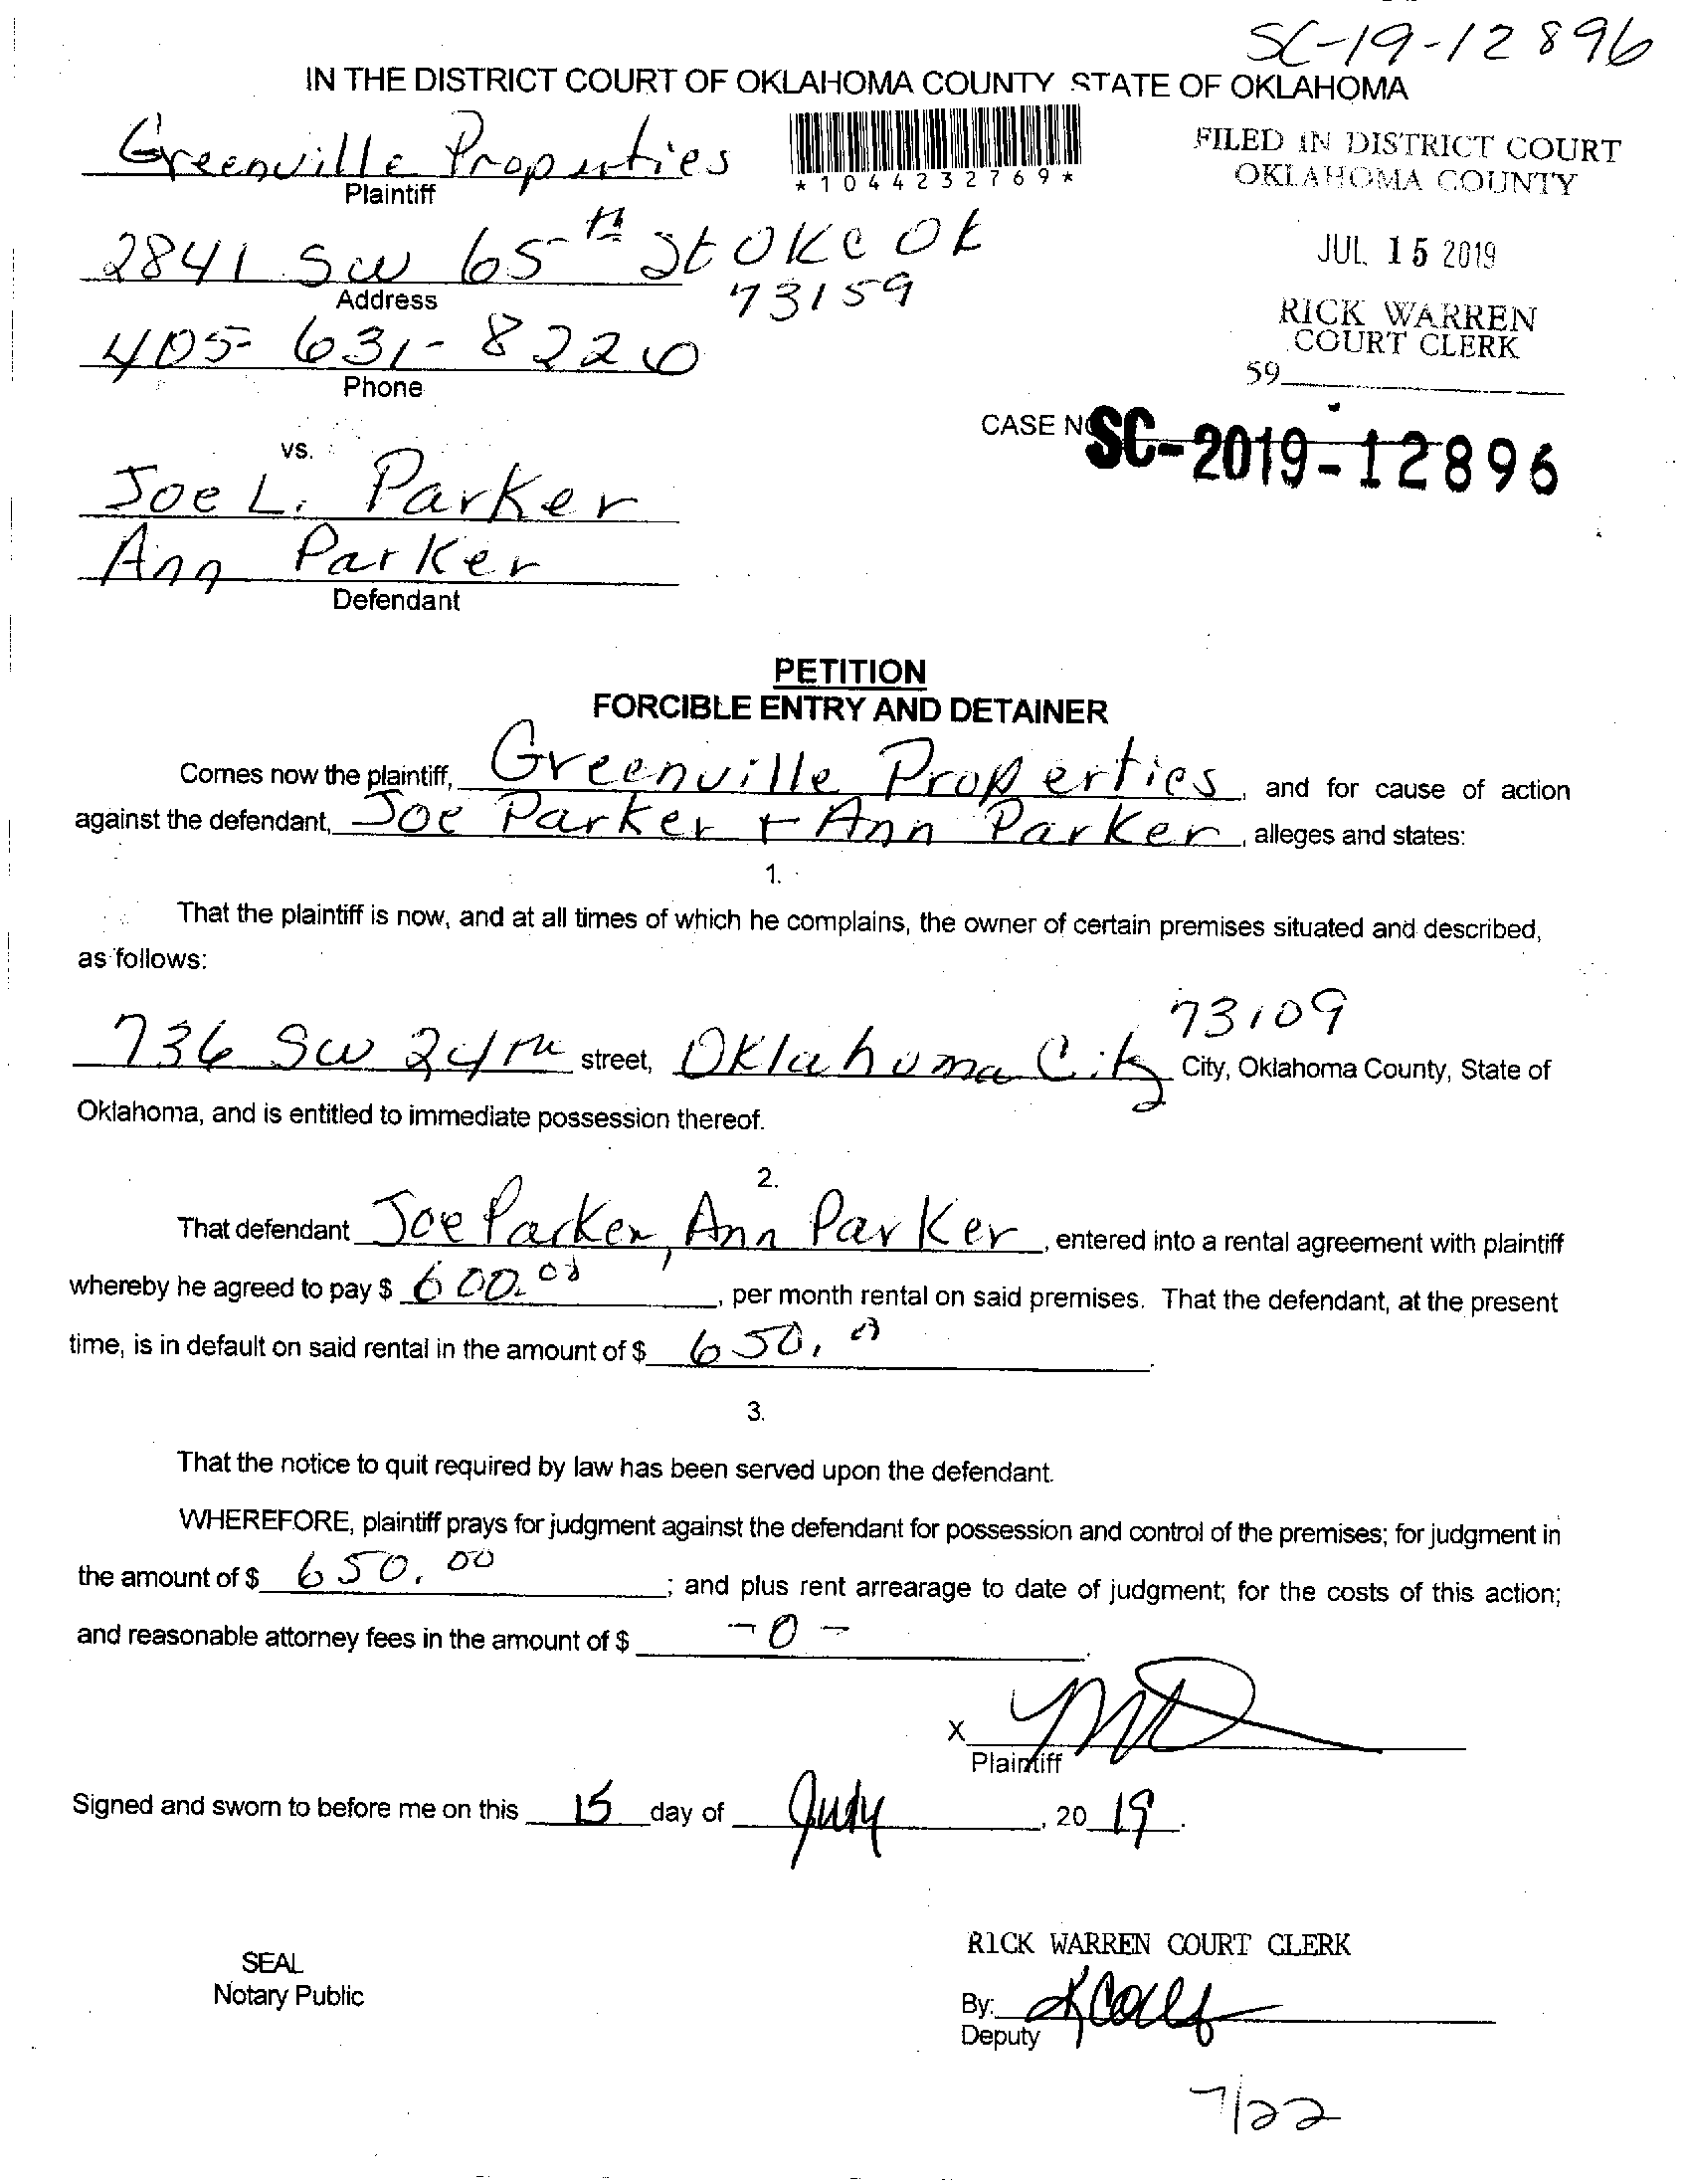 SC-19-12896
IN THE DISTRICT COURT OF OKLAHOMA COUNTY STATE OF OKLAHOMA
Greenville Properties
Plaintiff
*1044232769*
FILED IN DISTRICT COURT
OKLAHOMA COUNTY
2841 SW 65th St OKC OK
73159
Address
JUL 15 2019
405-631-8220
Phone
RICK WARREN
COURT CLERK
59
CASE NO
SC-2019-12896
vs.
Joe L. Parker
Ann Parker
Defendant
PETITION
FORCIBLE ENTRY AND DETAINER
Comes now the plaintiff, Greenville Properties, and for cause of action
against the defendant, Joe Parker + Ann Parker, alleges and states:
1.
That the plaintiff is now, and at all times of which he complains, the owner of certain premises situated and described,
as follows:
73109
736 SW 24th street, Oklahoma City City, Oklahoma County, State of
Oklahoma, and is entitled to immediate possession thereof.
2.
That defendant Joe Parker, Ann Parker, entered into a rental agreement with plaintiff
whereby he agreed to pay $ 600.00, per month rental on said premises. That the defendant, at the present
time, is in default on said rental in the amount of $ 650.
3.
That the notice to quit required by law has been served upon the defendant.
WHEREFORE, plaintiff prays for judgment against the defendant for possession and control of the premises; for judgment in
the amount of $ 650.00; and plus rent arrearage to date of judgment; for the costs of this action;
and reasonable attorney fees in the amount of $ -0-.
X
Plaintiff
Signed and sworn to before me on this 15 day of July, 20 19.
SEAL
Notary Public
RICK WARREN COURT CLERK
By:
Deputy
7/22